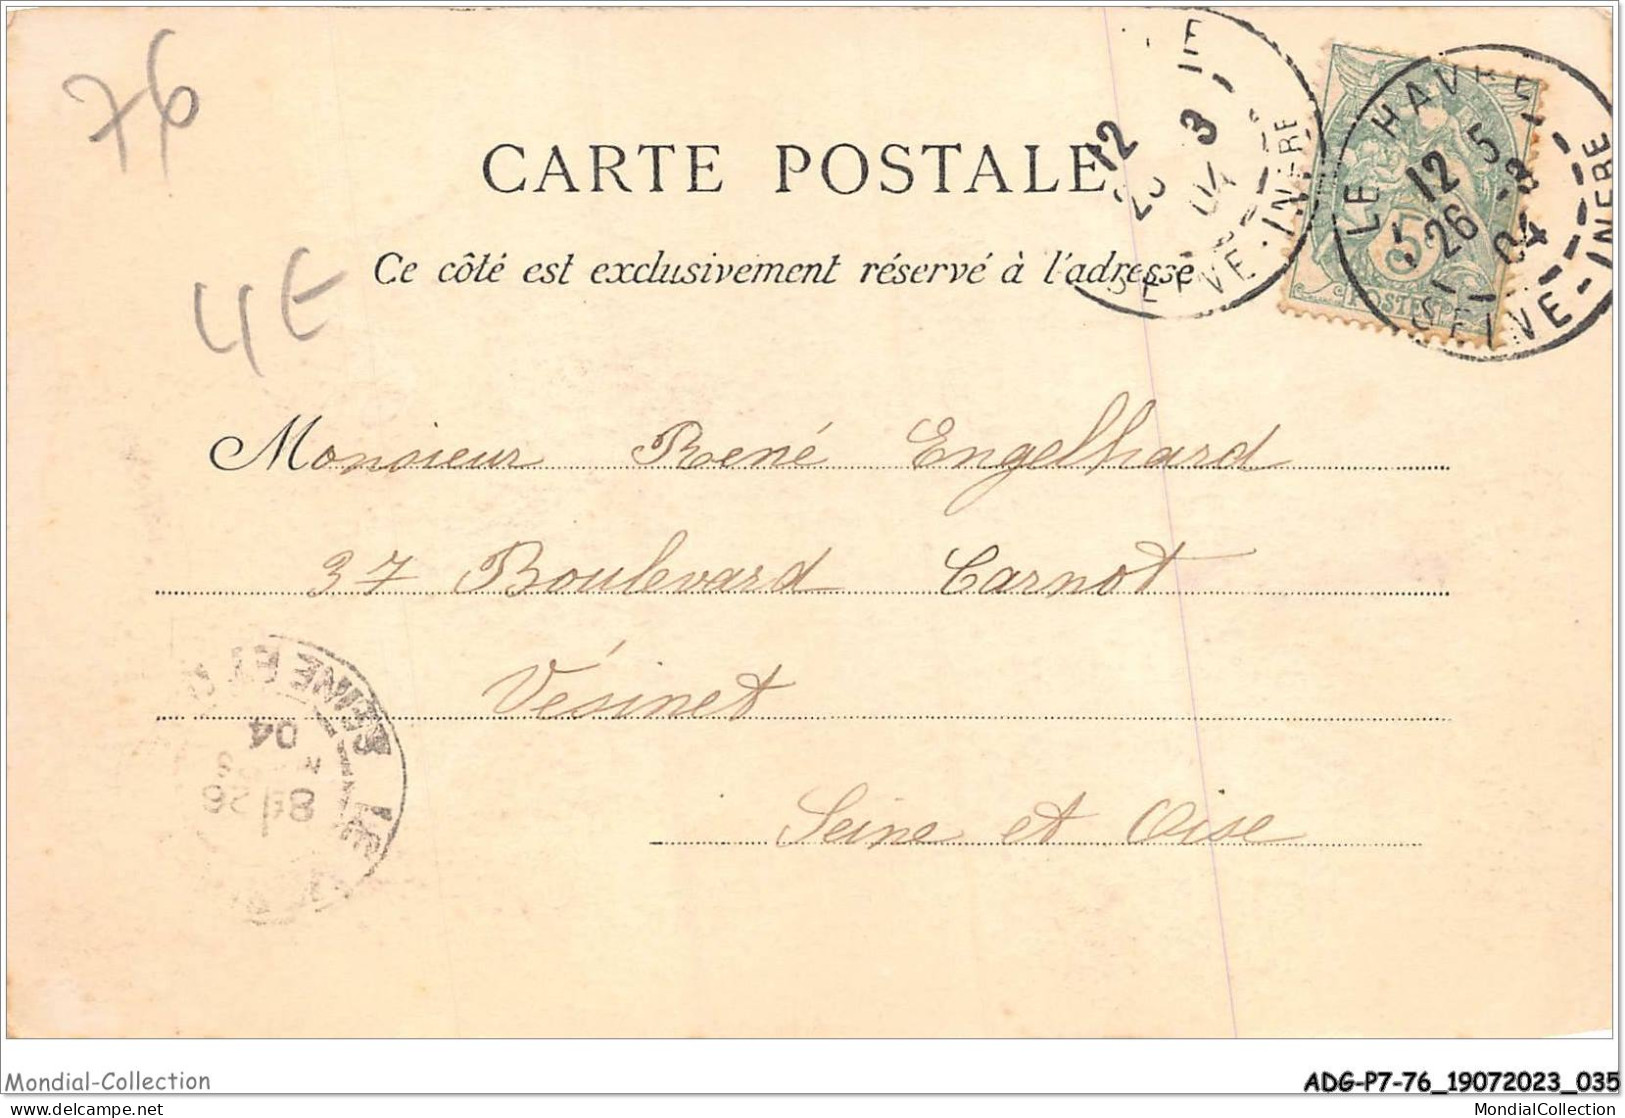 76
4E
CARTE POSTALE
Ce côté est exclusivement réservé à l'adresse
LE HAVRE
12 5
26 3
04
SEINE-INFRE
12
3
04
SEINE-INFRE
5
POSTES
Monsieur René Engelhard
37 Boulevard Carnot
Vésinet
Seine et Oise
SEINE ET
04
8E 26
LE
Mondial-Collection
ADG-P7-76_19072023_035
delcampe.net
MondialCollection